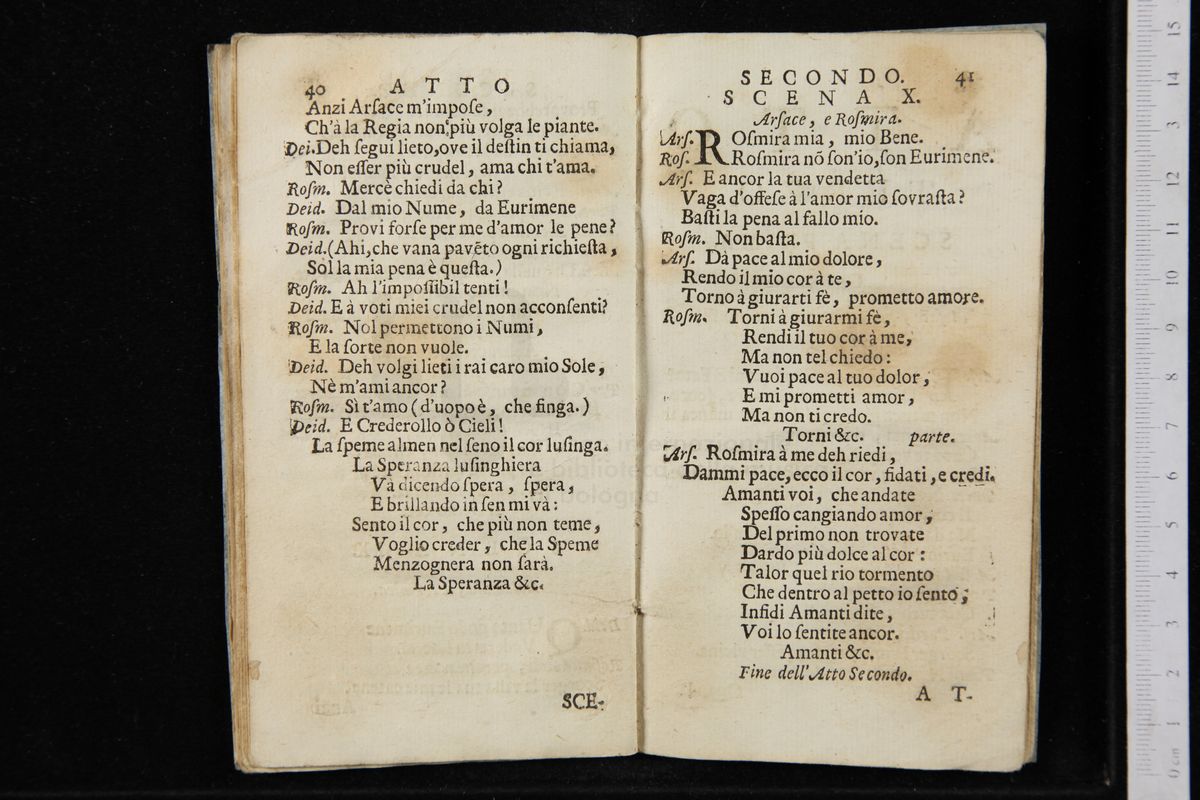 40 ATTO
Anzi Arſace m'impoſe,
Ch'à la Regia non più volga le piante.
Dei. Deh ſegui lieto, ove il deſtin ti chiama,
Non eſſer più crudel, ama chi t'ama.
Roſm. Mercè chiedi da chi?
Deid. Dal mio Nume, da Eurimene
Roſm. Provi forſe per me d'amor le pene?
Deid. (Ahi, che vana pavẽto ogni richieſta,
Sol la mia pena è queſta.)
Roſm. Ah l'impoſſibil tenti!
Deid. E à voti miei crudel non acconſenti?
Roſm. Nol permettono i Numi,
E la ſorte non vuole.
Deid. Deh volgi lieti i rai caro mio Sole,
Nè m'ami ancor?
Roſm. Sì t'amo (d'uopo è, che finga.)
Deid. E Crederollo ò Cieli!
La ſpeme almen nel ſeno il cor luſinga.
La Speranza luſinghiera
Và dicendo ſpera, ſpera,
E brillando in ſen mi và:
Sento il cor, che più non teme,
Voglio creder, che la Speme
Menzognera non ſarà.
La Speranza &c.
SCE-
SECONDO. 41
SCENA X.
Arſace, e Roſmira.
Arſ. ROſmira mia, mio Bene.
Roſ. Roſmira nõ ſon'io, ſon Eurimene.
Arſ. E ancor la tua vendetta
Vaga d'offeſe à l'amor mio ſovraſta?
Baſti la pena al fallo mio.
Roſm. Non baſta.
Arſ. Dà pace al mio dolore,
Rendo il mio cor à te,
Torno à giurarti fè, prometto amore.
Roſm. Torni à giurarmi fè,
Rendi il tuo cor à me,
Ma non tel chiedo:
Vuoi pace al tuo dolor,
E mi prometti amor,
Ma non ti credo.
Torni &c. parte.
Arſ. Roſmira à me deh riedi,
Dammi pace, ecco il cor, fidati, e credi.
Amanti voi, che andate
Speſſo cangiando amor,
Del primo non trovate
Dardo più dolce al cor:
Talor quel rio tormento
Che dentro al petto io ſento,
Infidi Amanti dite,
Voi lo ſentite ancor.
Amanti &c.
Fine dell'Atto Secondo.
AT-